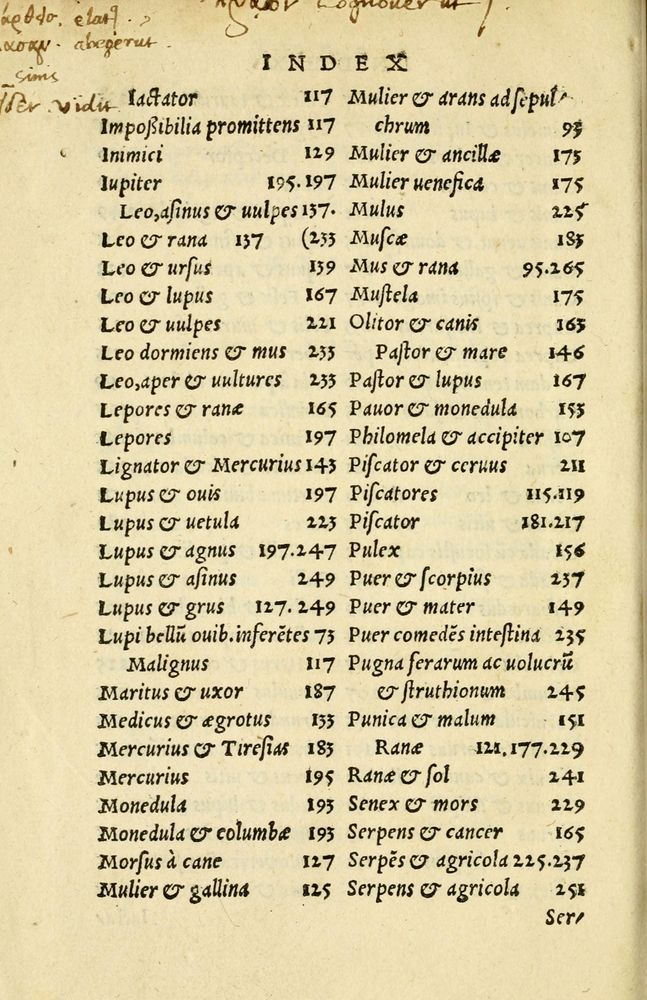 elat
abegerut
simis
vidit
INDEX
Iactator 117
Impoßibilia promittens 117
Inimici 129
Iupiter 195.197
Leo,asinus & uulpes 137.
Leo & rana 137 (233
Leo & ursus 139
Leo & lupus 167
Leo & uulpes 221
Leo dormiens & mus 233
Leo,aper & uultures 233
Lepores & ranæ 165
Lepores 197
Lignator & Mercurius 143
Lupus & ouis 197
Lupus & uetula 223
Lupus & agnus 197.247
Lupus & asinus 249
Lupus & grus 127.249
Lupi bellū ouib.inferētes 73
Malignus 117
Maritus & uxor 187
Medicus & ægrotus 133
Mercurius & Tiresias 183
Mercurius 195
Monedula 193
Monedula & columbæ 193
Morsus à cane 127
Mulier & gallina 125
Mulier & arans ad sepul-
chrum 93
Mulier & ancillæ 175
Mulier uenefica 175
Mulus 225
Muscæ 183
Mus & rana 95.265
Mustela 175
Olitor & canis 163
Pastor & mare 146
Pastor & lupus 167
Pauor & monedula 153
Philomela & accipiter 107
Piscator & ceruus 211
Piscatores 115.119
Piscator 181.217
Pulex 156
Puer & scorpius 237
Puer & mater 149
Puer comedēs intestina 235
Pugna ferarum ac uolucrū
& struthionum 245
Punica & malum 151
Ranæ 121.177.229
Ranæ & sol 241
Senex & mors 229
Serpens & cancer 165
Serpēs & agricola 225.237
Serpens & agricola 251
Ser-